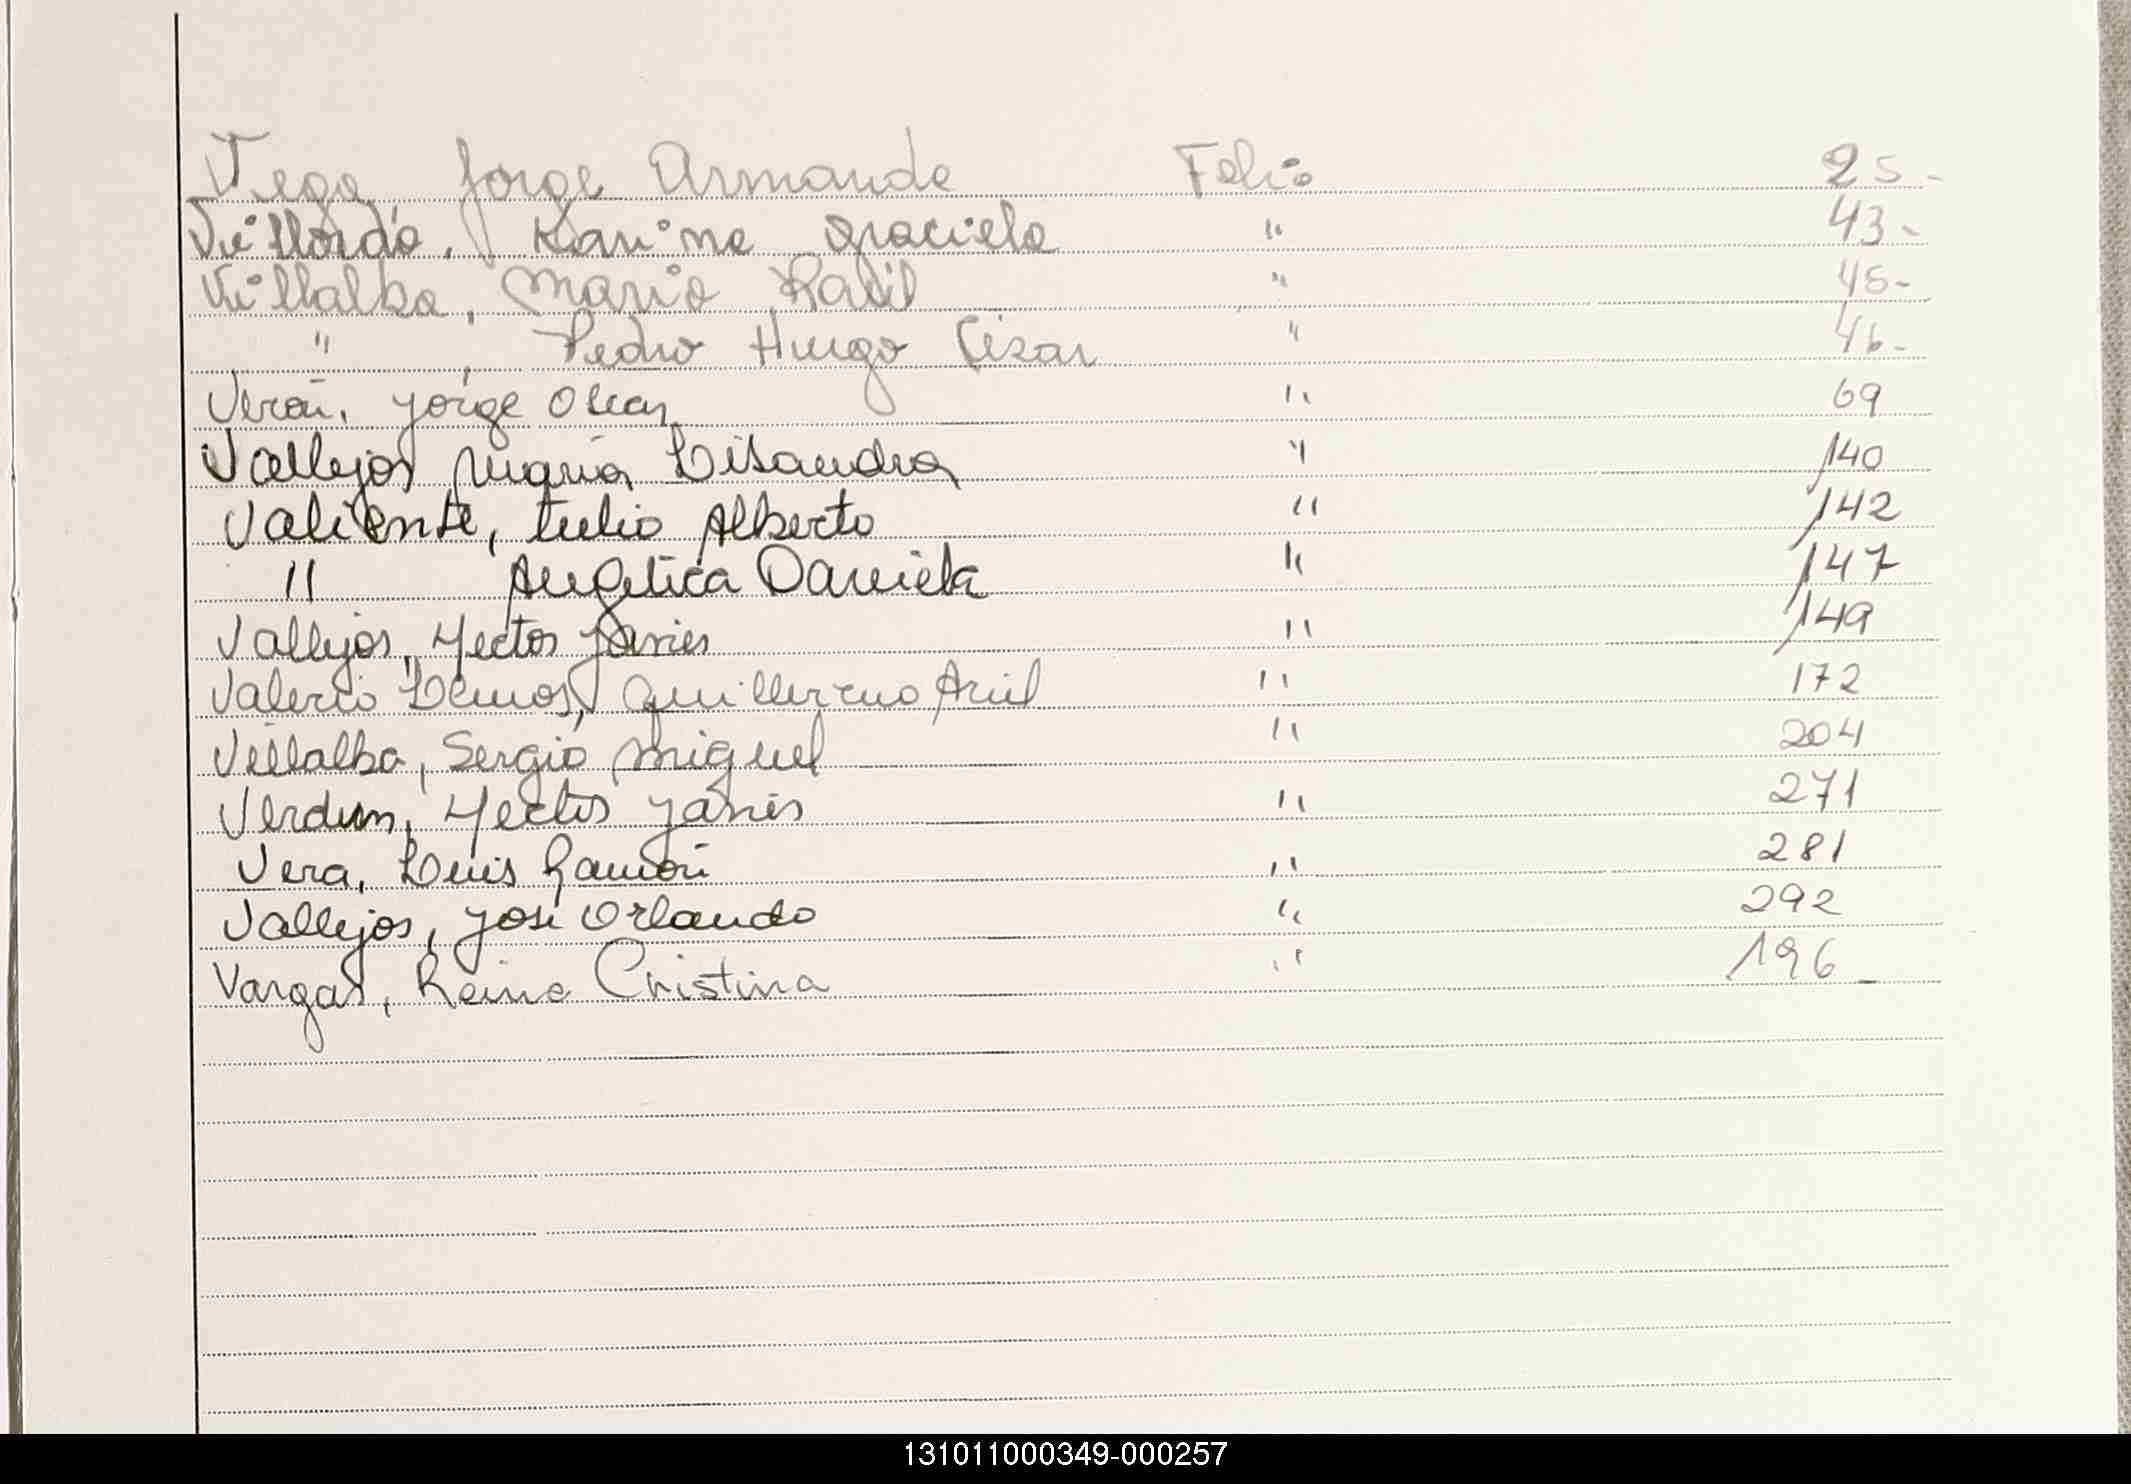 Vega Jorge Armando Folio 25-
Villordo, Karina Graciela " 43-
Villalba, Mario Raúl " 45-
" , Pedro Hugo César " 46-
Verón, Jorge Oscar " 69
Vallejos María Lisandra " 140
Valiente, Tulio Alberto " 142
" Angélica Daniela " 147
Vallejos, Hector Javier " 149
Valerio Lemos, Guillermo Ariel " 172
Villalba, Sergio Miguel " 204
Verdun, Hector Javier " 271
Vera, Luis Ramón " 281
Vallejos, José Orlando " 292
Vargas, Reina Cristina " 196
131011000349-000257